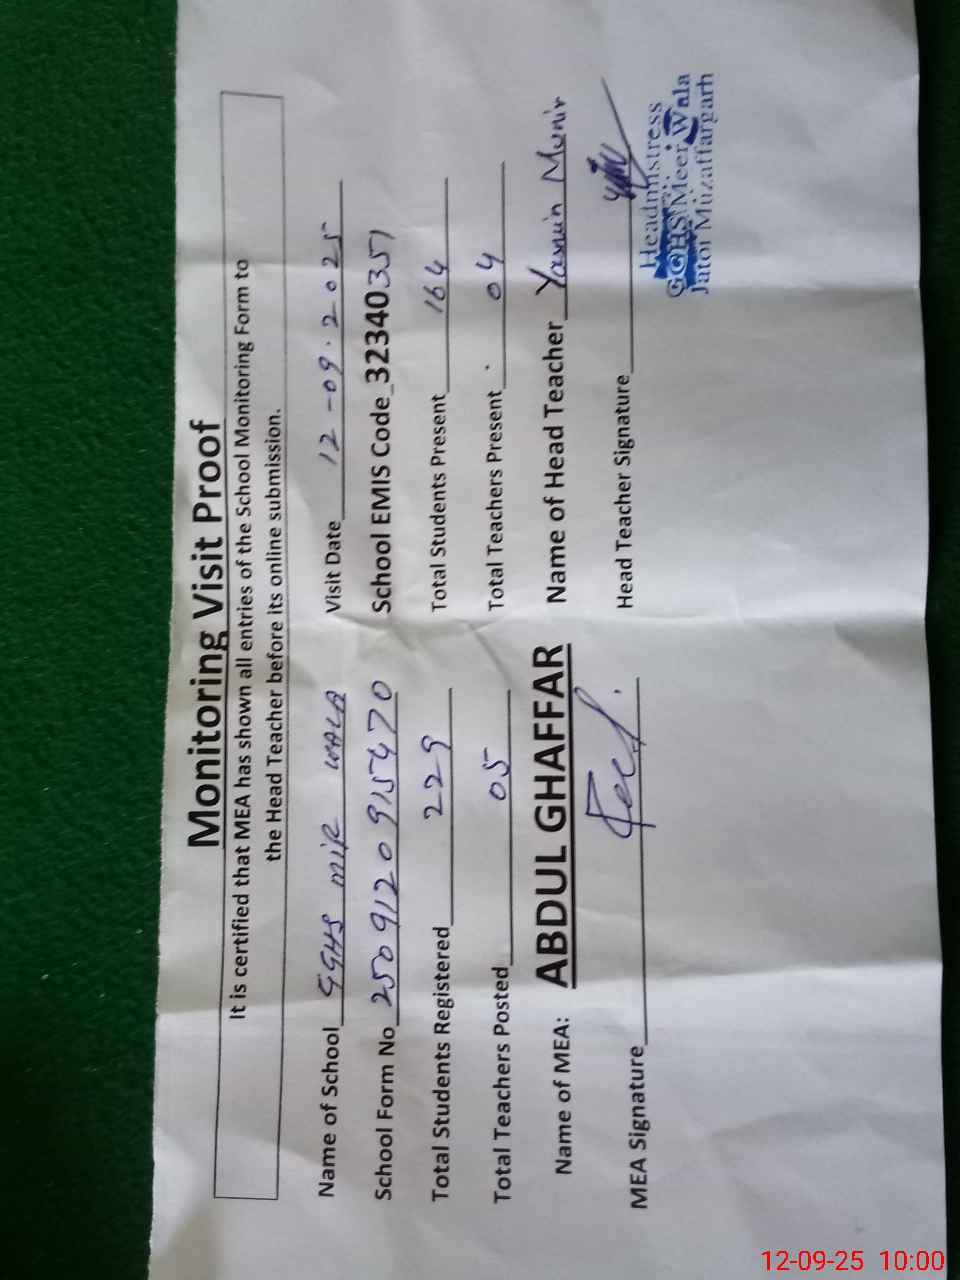 Monitoring Visit Proof
It is certified that MEA has shown all entries of the School Monitoring Form to
the Head Teacher before its online submission.
Name of School GGHS MIR WALA Visit Date 12-09.2025
School Form No 2509120915470 School EMIS Code 32340351
Total Students Registered 229 Total Students Present 164
Total Teachers Posted 05 Total Teachers Present 04
Name of MEA: ABDUL GHAFFAR Name of Head Teacher Yasmin Munir
MEA Signature Head Teacher Signature
Headmistress
GGHS Meer Wala
Jatoi Muzaffargarh
12-09-25 10:00